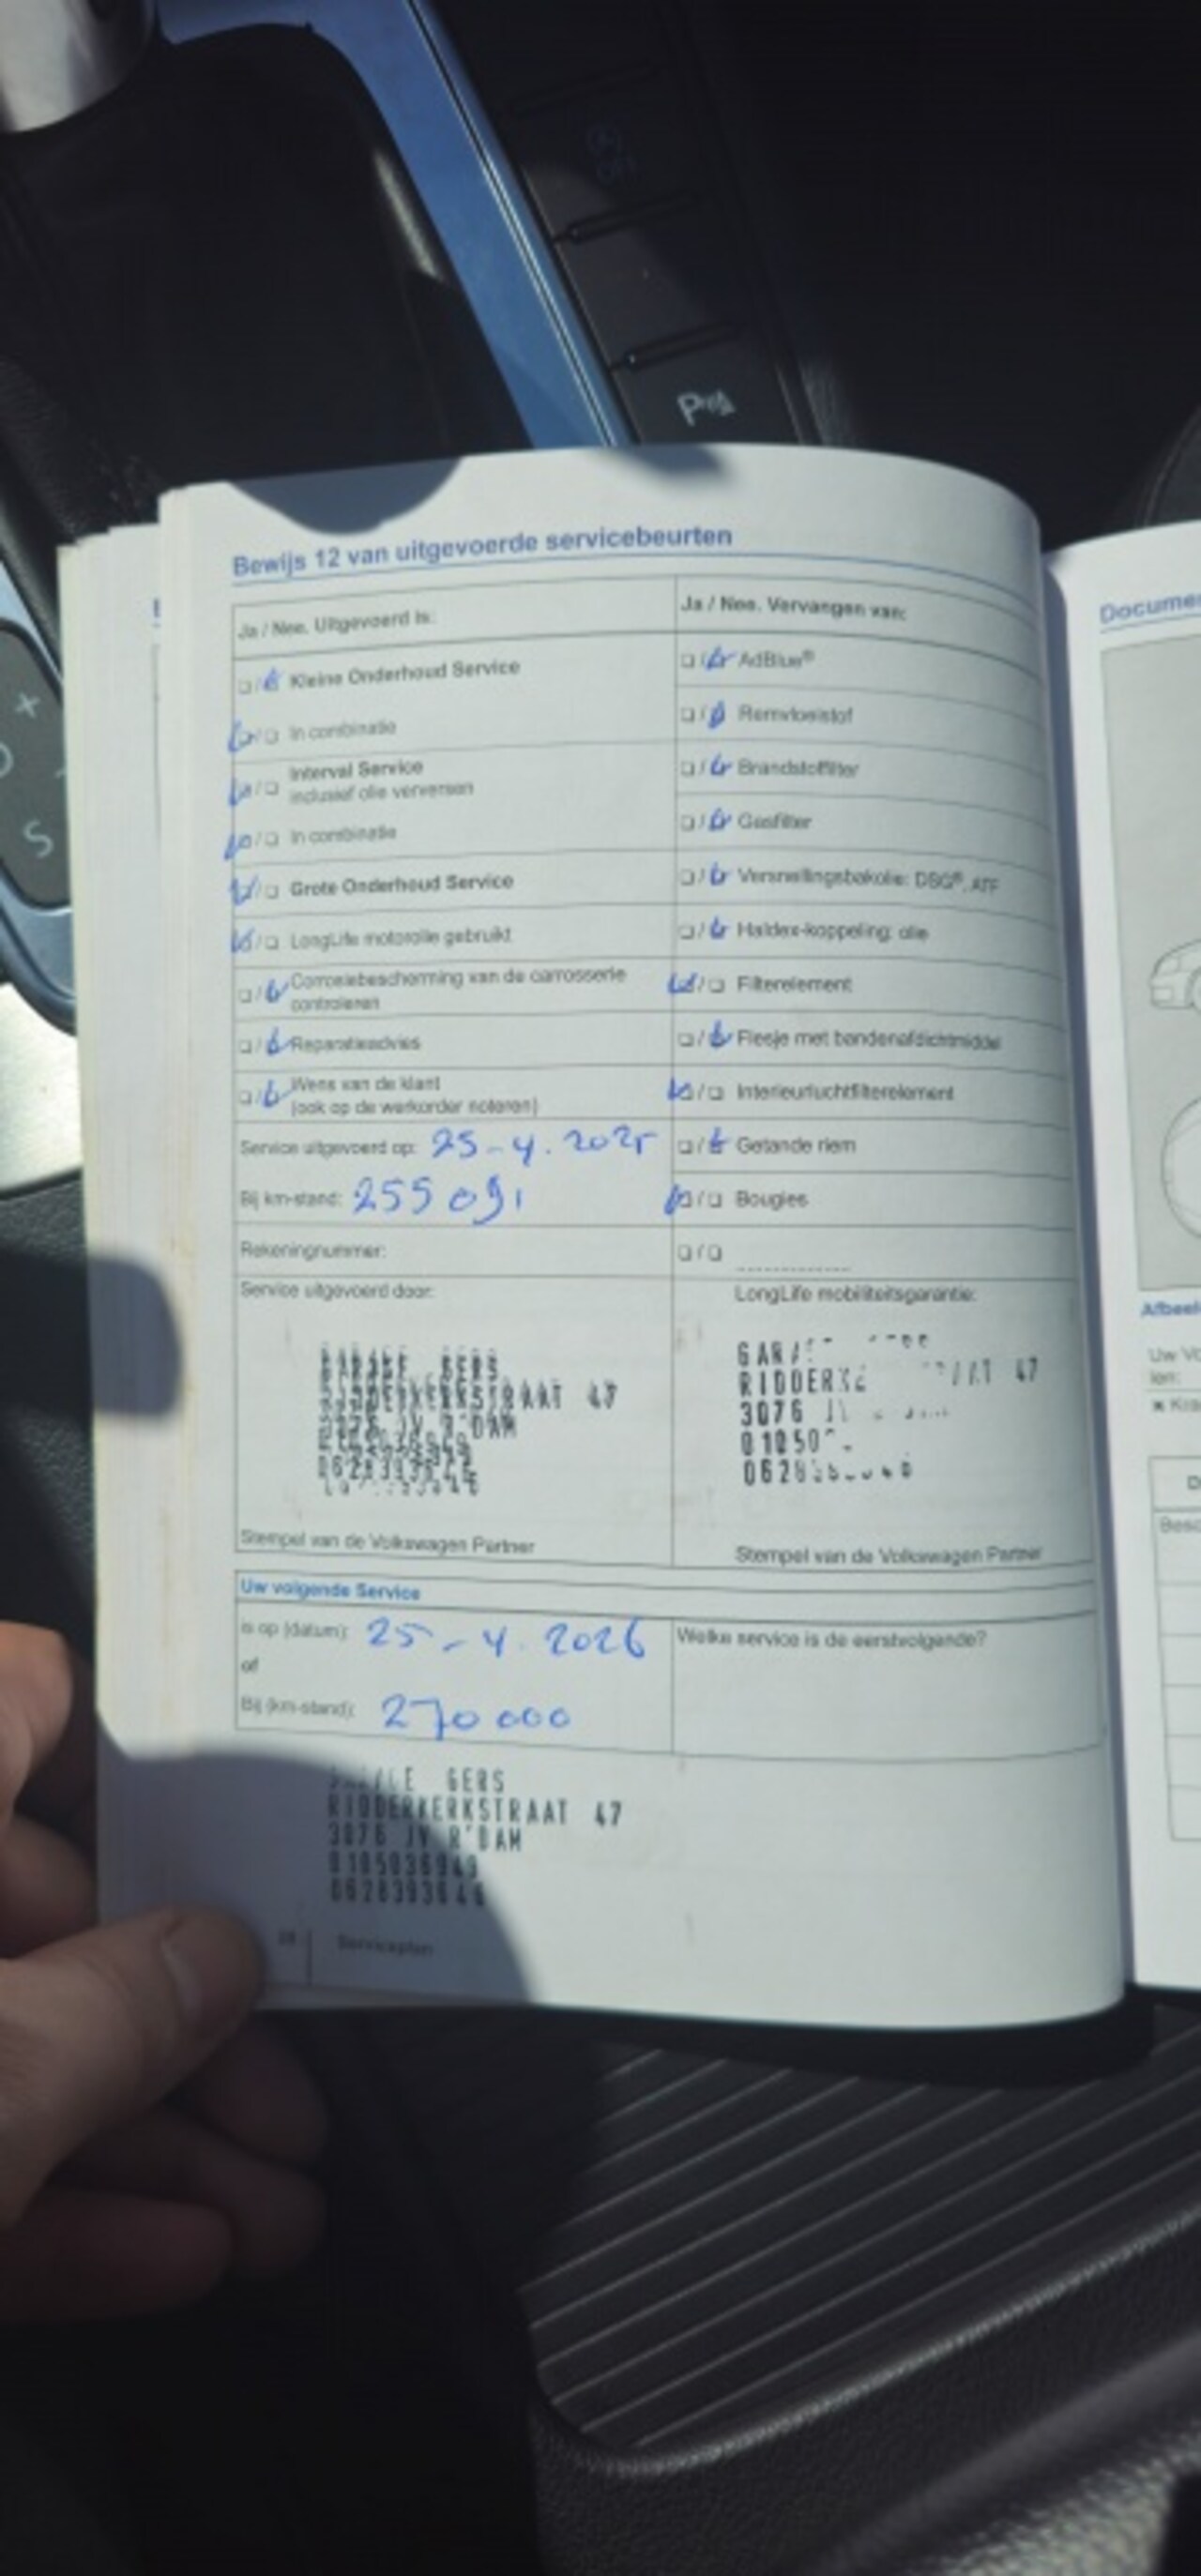 OFF
P
+
S
Bewijs 12 van uitgevoerde servicebeurten
Ja / Nee. Uitgevoerd is:
Kleine Onderhoud Service
In combinatie
Interval Service
inclusief olie verversen
In combinatie
Grote Onderhoud Service
LongLife motorolie gebruikt
Corrosiebescherming van de carrosserie
controleren
Reparatieadvies
Wens van de klant
(ook op de werkorder noteren)
Service uitgevoerd op: 25-4.2025
Bij km-stand: 255 091
Rekeningnummer:
Service uitgevoerd door:
GERS
STRAAT 47
3076 JV R'DAM
Stempel van de Volkswagen Partner
Ja / Nee. Vervangen van:
AdBlue®
Remvloeistof
Brandstoffilter
Gasfilter
Versnellingsbakolie: DSG®, ATF
Haldex-koppeling: olie
Filterelement
Flesje met bandenafdichtmiddel
Interieurluchtfilterelement
Getande riem
Bougies
LongLife mobiliteitsgarantie:
47
3076
Stempel van de Volkswagen Partner
Uw volgende Service
is op (datum): 25-4.2026
of
Bij (km-stand): 270 000
Welke service is de eerstvolgende?
GERS
RIDDERKERKSTRAAT 47
3076 JV R'DAM
0105036949
28 Serviceplan
Uw